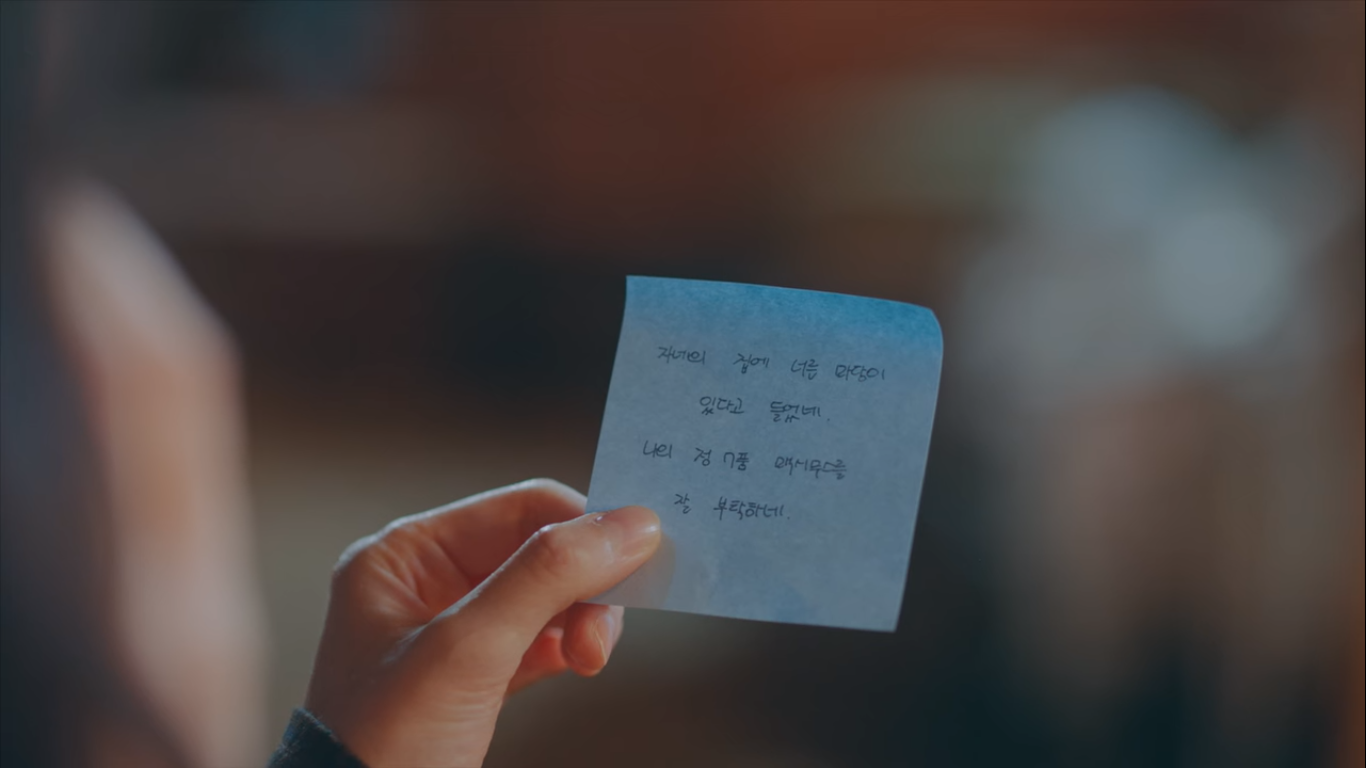 자네의 집에 너른 마당이
있다고 들었네.
나의 정 7품 맥시무스를
잘 부탁하네.